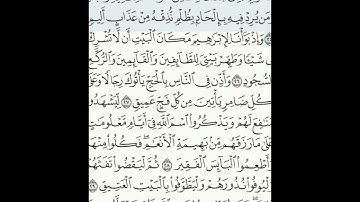 وَمَن يُرِدْ فِيهِ بِإِلْحَادٍ بِظُلْمٍ نُّذِقْهُ مِنْ عَذَابٍ أَلِيمٍ
﴿٢٥﴾ وَإِذْ بَوَّأْنَا لِإِبْرَاهِيمَ مَكَانَ الْبَيْتِ أَن لَّا تُشْرِكْ
بِي شَيْئًا وَطَهِّرْ بَيْتِيَ لِلطَّائِفِينَ وَالْقَائِمِينَ وَالرُّكَّعِ
السُّجُودِ ﴿٢٦﴾ وَأَذِّن فِي النَّاسِ بِالْحَجِّ يَأْتُوكَ رِجَالًا وَعَلَىٰ
كُلِّ ضَامِرٍ يَأْتِينَ مِن كُلِّ فَجٍّ عَمِيقٍ ﴿٢٧﴾ لِّيَشْهَدُوا
مَنَافِعَ لَهُمْ وَيَذْكُرُوا اسْمَ اللَّهِ فِي أَيَّامٍ مَّعْلُومَاتٍ
عَلَىٰ مَا رَزَقَهُم مِّن بَهِيمَةِ الْأَنْعَامِ فَكُلُوا مِنْهَا
وَأَطْعِمُوا الْبَائِسَ الْفَقِيرَ ﴿٢٨﴾ ثُمَّ لْيَقْضُوا تَفَثَهُمْ
وَلْيُوفُوا نُذُورَهُمْ وَلْيَطَّوَّفُوا بِالْبَيْتِ الْعَتِيقِ ﴿٢٩﴾